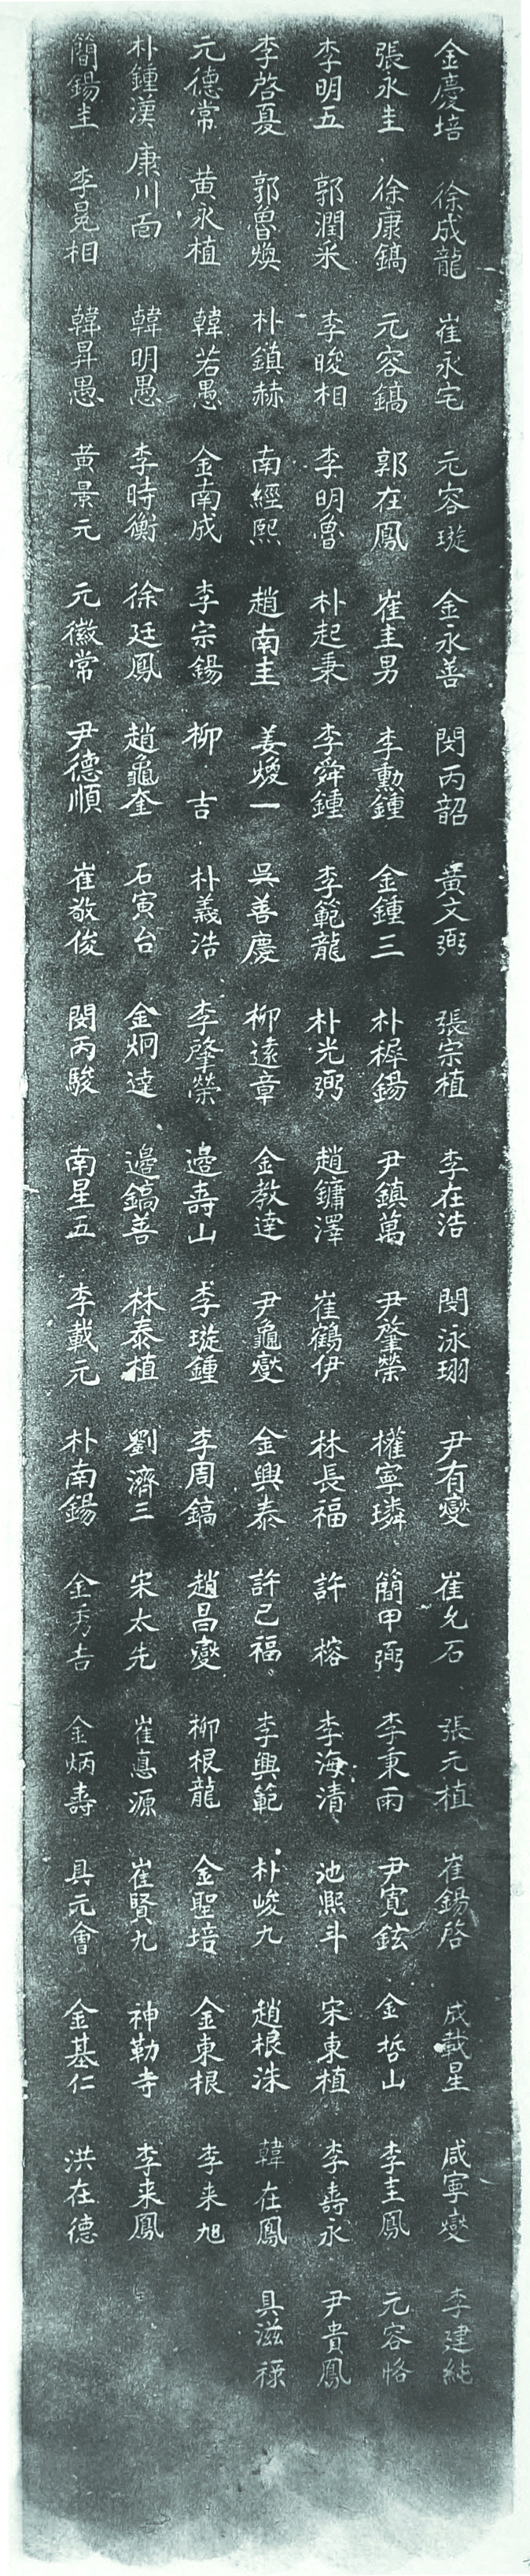 金慶培 徐成龍 崔永宅 元容璇 金永善 閔丙韶 黃文弼 張宗植 李在浩 閔泳珝 尹有燮 崔允石 張元植 崔錫啓 成載星 咸寧燮 李建純
張永圭 徐康鎬 元容鎬 郭在鳳 崔圭男 李勳鍾 金鍾三 朴穉錫 尹鎮萬 尹肇榮 權寧璘 簡甲弼 李秉雨 尹寬鉉 金哲山 李圭鳳 元容恪
李明五 郭潤釆 李晙相 李明魯 朴起秉 李舜鍾 李範龍 朴光弼 趙鏞澤 崔鶴伊 林長福 許榕 李海清 池熙斗 宋東植 李壽永 尹貴鳳
李啓夏 郭魯煥 朴鎮赫 南經熙 趙南圭 姜煐一 吳善慶 柳遠章 金教達 尹龜燮 金興泰 許己福 李興範 朴峻九 趙根洙 韓在鳳 具滋祿
元德常 黃永植 韓若愚 金南成 李宗錫 柳吉 朴義浩 李肇榮 邊壽山 李璇鍾 李周鎬 趙昌燮 柳根龍 金聖培 金東根 李来旭
朴鍾漢 康川面 韓明愚 李時衡 徐廷鳳 趙龜奎 石寅台 金炯達 邊鎬善 林泰植 劉濟三 宋太先 崔悳源 崔賢九 神勒寺 李来鳳
簡錫圭 李冕相 韓昇愚 黃景元 元徽常 尹德順 崔敬俊 閔丙駿 南星五 李載元 朴南錫 金秀吉 金炳壽 具元會 金基仁 洪在德